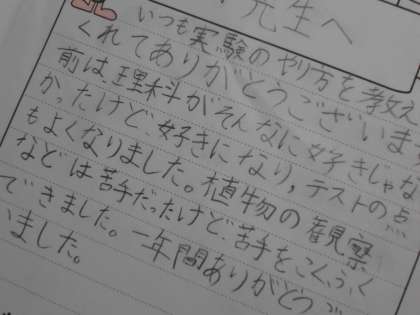 先生へ
いつも実験のやり方を教え
くれてありがとうございます
前は、理科がそんなに好きじゃな
かったけど、好きになり，テストの点
もよくなりました。植物の観察
などは苦手だったけど、苦手をこくふく
できました。一年間ありがとうご
いました。